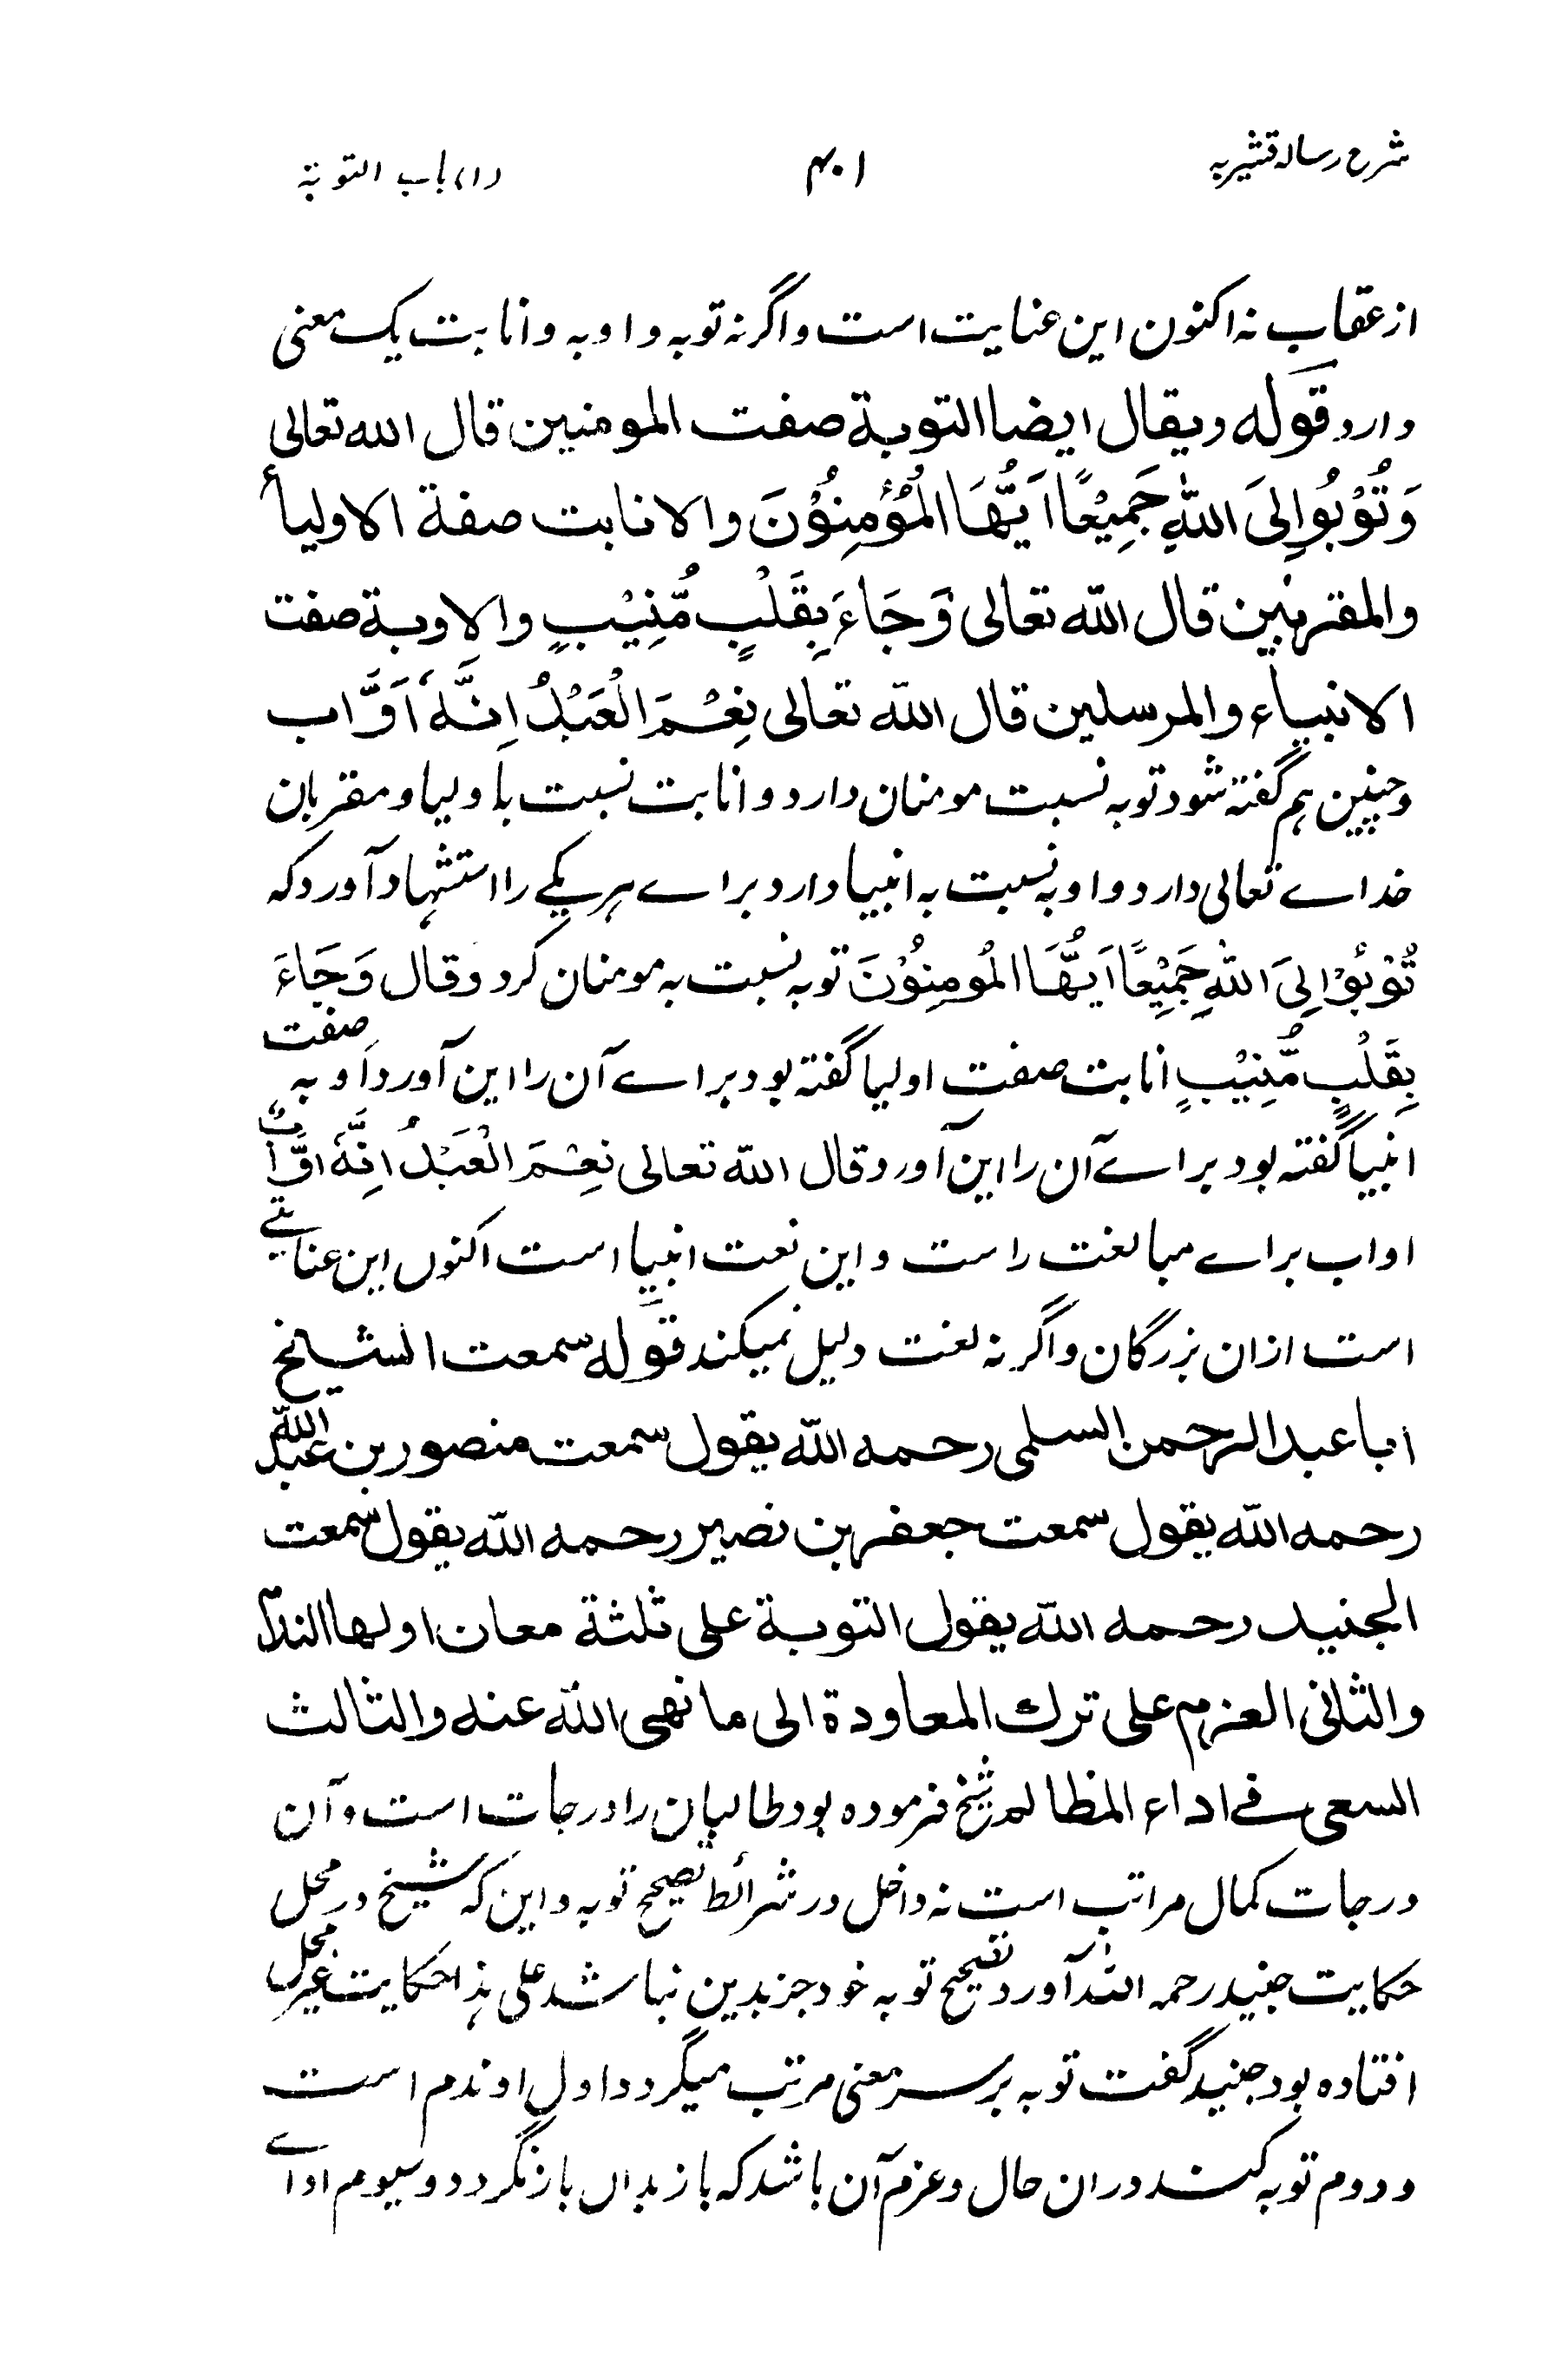 شرح رسالہ قشیریہ
۴۰۱
(۱) باب التوبۃ
از عقاب نہ اکنون این عنایت است واگرنہ توبہ و اوبہ و انابت یک معنی
دارد قوله ويقال ايضا التوبة صفت المومنين قال الله تعالى
وَتُوْبُوا اِلَى اللهِ جَمِيْعًا اَيُّهَا الْمُؤْمِنُوْنَ والانابت صفة الاولياء
والمقربين قال الله تعالى وَجَاءَ بِقَلْبٍ مُّنِيْبٍ والاوبة صفت
الانبياء والمرسلين قال الله تعالى نِعْمَ الْعَبْدُ اِنَّهٗ اَوَّاب
وچنین ہم گفتہ شود توبہ نسبت مومنان دارد و انابت نسبت باولیا و مقربان
خداے تعالی دارد و اوبہ نسبت بہ انبیا دارد براے ہر یکے را استشہاد آورد کہ
تُوْبُوْا اِلَى اللهِ جَمِيْعًا اَيُّهَا الْمُومِنُوْنَ توبہ نسبت بہ مومنان کرد وقال وَجَاءَ
بِقَلْبٍ مُّنِيْبٍ انابت صفت اولیا گفتہ بود براے آن را این آورد اوبہ صفت
انبیا گفتہ بود براے آن را این آورد قال الله تعالى نِعْمَ الْعَبْدُ اِنَّهٗ اوَّابٌ
اواب براے مبالغت راست و این نعت انبیا است اکنوں این عنایتے
است ازان بزرگان واگرنہ لغت دلیل نمیکند قوله سمعت الشيخ
ابا عبد الرحمن السلمى رحمه الله يقول سمعت منصور بن عبد الله
رحمه الله يقول سمعت جعفر بن نصير رحمه الله يقول سمعت
الجنيد رحمه الله يقول التوبة على ثلثة معان اولها الندم
والثانى العزم على ترك المعاودة الى ما نهى الله عنه والثالث
السعى فے اداء المظالم شیخ فرمودہ بود طالبان را درجات است و آن
درجات کمال مراتب است نہ داخل در شرائط تصحیح توبہ و این کہ شیخ در محل
حکایت جنید رحمہ اللہ آورد تصحیح توبہ خود جز بدین نباشد علی ہذا حکایت غیر محل
افتادہ بود جنید گفت توبہ بر سہ معنی مرتب میگردد اول او ندم است
و دوم توبہ کند دران حال و عزم آن باشد کہ باز بداں باز نگردد و سیوم اداے